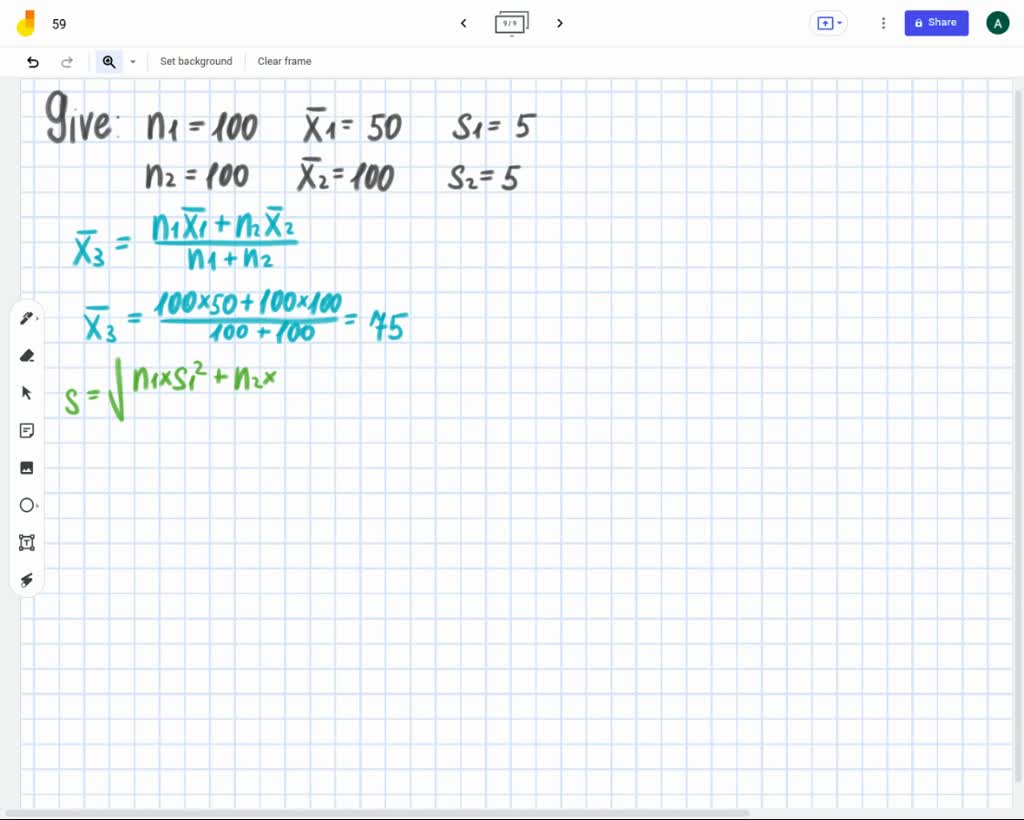 59
9/9
Share
A
Set background
Clear frame
Give: n₁ = 100 x̄₁ = 50 s₁ = 5
n₂ = 100 x̄₂ = 100 s₂ = 5
x̄₃ = (n₁x̄₁ + n₂x̄₂) / (n₁ + n₂)
x̄₃ = (100×50 + 100×100) / (100 + 100) = 75
s = √n₁×s₁² + n₂×
T